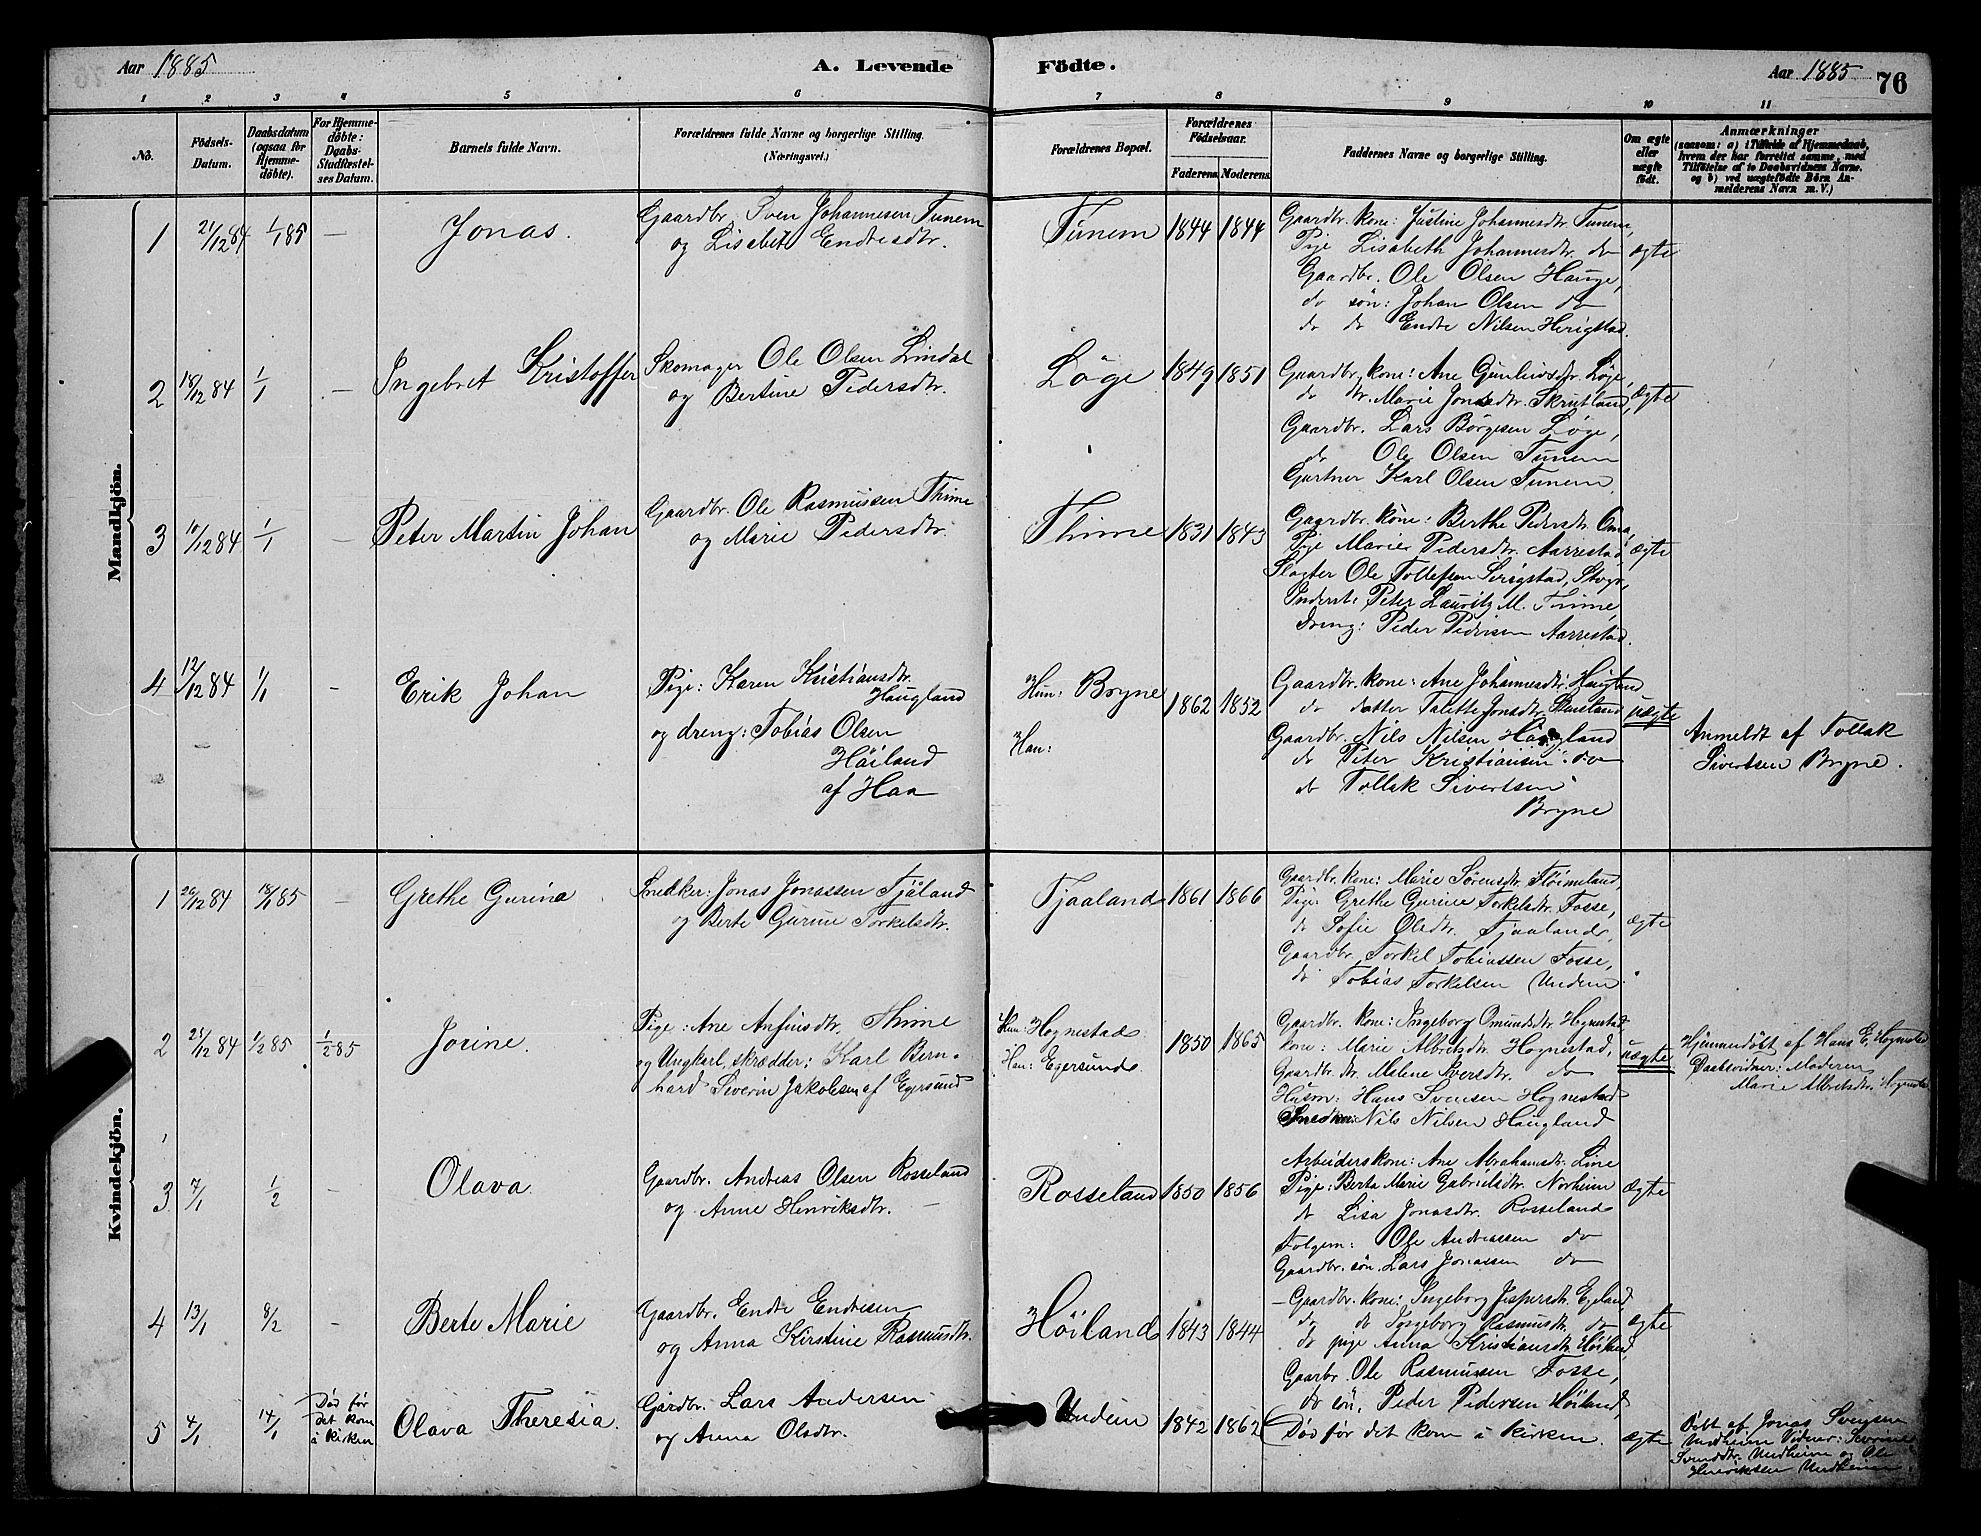 Aar 1885
A. Levende
Födte.
Aar 1885 76
1 2 3 4 5 6 7 8 9 10 11
No.
Födsels-
Datum.
Daabsdatum
(ogsaa for
Hjemme-
döbte).
For Hjemme-
döbte:
Daabs-
Stadfæstel-
ses Datum.
Barnets fulde Navn.
Forældrenes fulde Navne og borgerlige Stilling.
(Næringsvei.)
Forældrenes Bopæl.
Forældrenes
Födselsaar.
Faderens. Moderens.
Faddernes Navne og borgerlige Stilling.
Om ægte
eller
uægte
født.
Anmærkninger
(saasom: a) i Tilfælde af Hjemmedaab,
hvem der har forrettet samme, med
Tilföielse af to Daabsvidners Navne.
og b) ved uægtefödte Börn An-
melderens Navn m. V.)
Mandkjön.
1 21/12 84 1/1 85 — Jonas.
Gaardbr. Sven Johannesen Tunem
og Lisabet Endresdtr.
Tunem 1844 1844
Gaardbr. kone: Justine Johannesdtr. Tunem,
Pige Lisabeth Johannesdtr. do
Gaardbr. Ole Olsen Hauge,
do søn: Johan Olsen do
do do Endre Nilsen Herigstad.
ægte
2 18/12 84 1/1 — Ingebret Kristoffer
Skomager Ole Olsen Lindal
og Bertine Pedersdtr.
Løge 1849 1851
Gaardbr. kone: Ane Løge,
do dtr. Marie Jonasdtr. Skrutland,
Gaardbr. Lars Børgesen Løge,
do Ole Olsen Tunem
Gartner Karl Olsen Tunem
Ægte
3 10/12 84 1/1 — Peter Martin Johan
Gaardbr. Ole Rasmussen Thime
og Marie Pedersdtr.
Thime 1831 1843
Gaardbr. kone: Berthe Pedersdtr. Oma,
Pige Marie Pedersdtr. Aarrestad,
Slagter Ole Tollefsen Serigstad,
Inderst: Peter Lauritz M. Thime,
Dreng: Peder Pedersen Aarrestad.
ægte
4 12/12 84 1/1 - Erik Johan
Pige: Karen Kristiansdtr.
Haugland
og dreng: Tobias Olsen
Höiland
af Haa
Hun: Bryne
Han:
1862 1852
Gaardbr. kone: Ane Johannesdtr. Haugland
do datter Talette Jonsdtr.
Gaardbr. Nils Nilsen Haugland
do Peter Kristiansen do
do Tollak Sivertsen
Bryne
uægte
Anmeldt af Tollak
Sivertsen Bryne.
Kvindekjön.
1 26/12 84 18/1 85 — Grethe Gurina
Snedker: Jonas Jonassen Tjåland
og Berte Gurine Torkelsdtr.
Tjaaland 1861 1866
Gaardbr. kone: Marie Sørensdtr.
Pige: Grethe Gurine Torkelsdtr. Fosse,
do Sofie Olsdtr. Tjaaland,
Gaardbr. Torkel Tobiassen Fosse,
do Tobias Torkelsen Undem.
ægte
2 21/12 84 1/2 85 1/2 85 Josine.
Pige: Ane Anfinsdtr. Thime
og Ungkarl, skrædder: Karl Bern-
hard Severin Jakobsen af Egersund
Hun: Hognestad
Han: Egersund
1850 1865
Gaardbr. kone: Ingeborg Omundsdtr. Hognestad
kone: Marie Albretsdtr. Hognestad,
Gaardbr. dtr. Melene Sversdtr. do
Husm: Hans Svensen Hognestad
Snedker: Nils Nilsen Haugland
uægte
Hjemmedöbt af Hans E. Hognestad
Daabsvidner: Moderen
Marie Albretsdtr. Hognestad
3 7/1 1/2 - Olava
Gaardbr. Andreas Olsen Rosseland
og Anne Henriksdtr.
Rosseland 1850 1856
Arbeiderskone: Ane Abrahamsdtr. Line
Pige: Berta Marie Gabrielsdtr. Norheim
do Lisa Jonasdtr. Rosseland
Folgem: Ole Andreassen do
Gaardbr. søn. Lars Jonassen do
Ægte
4 13/1 8/2 - Berte Marie
Gaardbr. Endre Endresen
og Anna Kirstine Rasmusdtr.
Höiland 1843 1844
Gaardbr. kone: Ingeborg Jespersdtr. Egeland
do do Ingeborg Rasmusdtr. do
do pige Anna Kristiansdtr. Höiland,
Gaarbr. Ole Rasmussen Fosse,
do søn, Peder Pedersen Höiland,
ægte
5 4/1 14/1 Död før
det kom
i kirken
Olava Theresia.
Gårdbr. Lars Andersen
og Anna Olsdtr.
Undem 1842 1862
Död før det kom i kirken.
ægte
Döbt af Jonas Svensen
Undheim Vidner: Severine
Svendsdtr. Undheim og Ole
Henriksen Undheim.